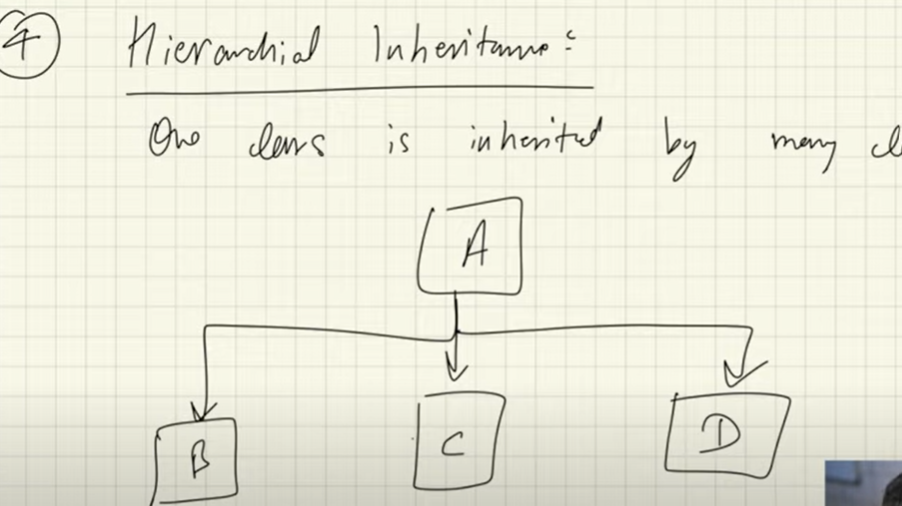 4 Hierarchial Inheritance:
One class is inherited by many cl
A
B C D